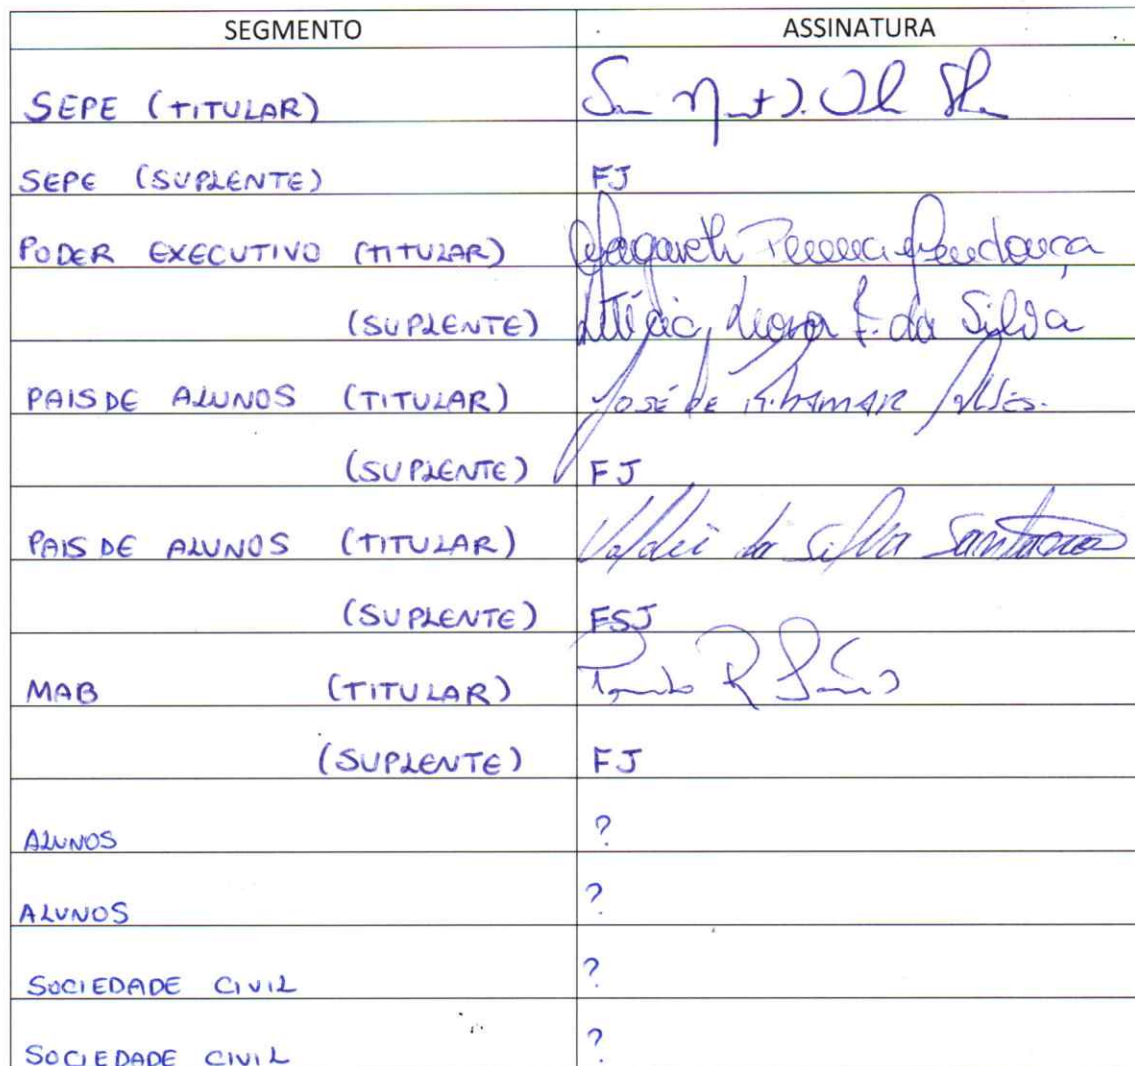 SEGMENTO ASSINATURA
SEPE (TITULAR)
SEPE (SUPLENTE) FJ
PODER EXECUTIVO (TITULAR) Margareth Pereira Mendonça
(SUPLENTE) F. da Silva
PAIS DE ALUNOS (TITULAR) José de Ribamar Alves.
(SUPLENTE) FJ
PAIS DE ALUNOS (TITULAR) Valdei da Silva Santana
(SUPLENTE) FSJ
MAB (TITULAR) R
(SUPLENTE) FJ
ALUNOS ?
ALUNOS ?
SOCIEDADE CIVIL ?
SOCIEDADE CIVIL ?